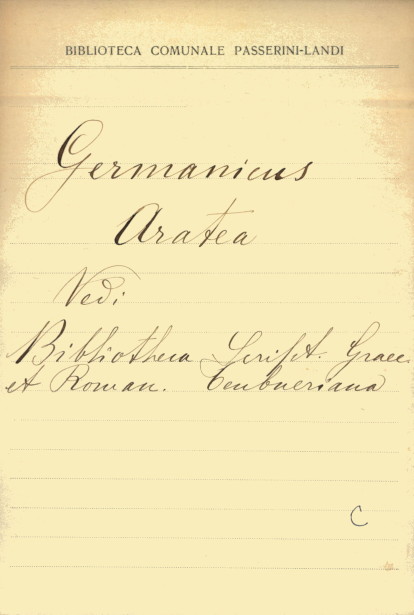 BIBLIOTECA COMUNALE PASSERINI-LANDI
Germanicus
Aratea
Vedi
Bibliotheca Script. Graec.
et Roman. Teubneriana
C